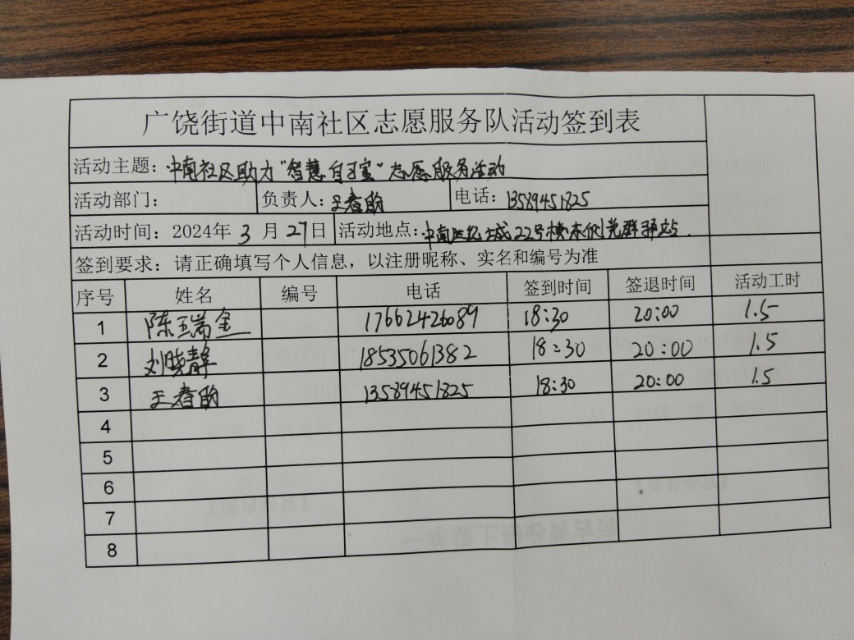 广饶街道中南社区志愿服务队活动签到表
活动主题：中南社区助力“智慧自习室”志愿服务活动
活动部门： 负责人：王春 电话：13589451825
活动时间：2024年3月27日 活动地点：中南世纪城22号楼东侧党群驿站.
签到要求：请正确填写个人信息，以注册昵称、实名和编号为准
序号 姓名 编号 电话 签到时间 签退时间 活动工时
1 陈瑞金 17662426089 18:30 20:00 1.5
2 刘晓静 18535061382 18:30 20:00 1.5
3 王春 13589451825 18:30 20:00 1.5
4
5
6
7
8